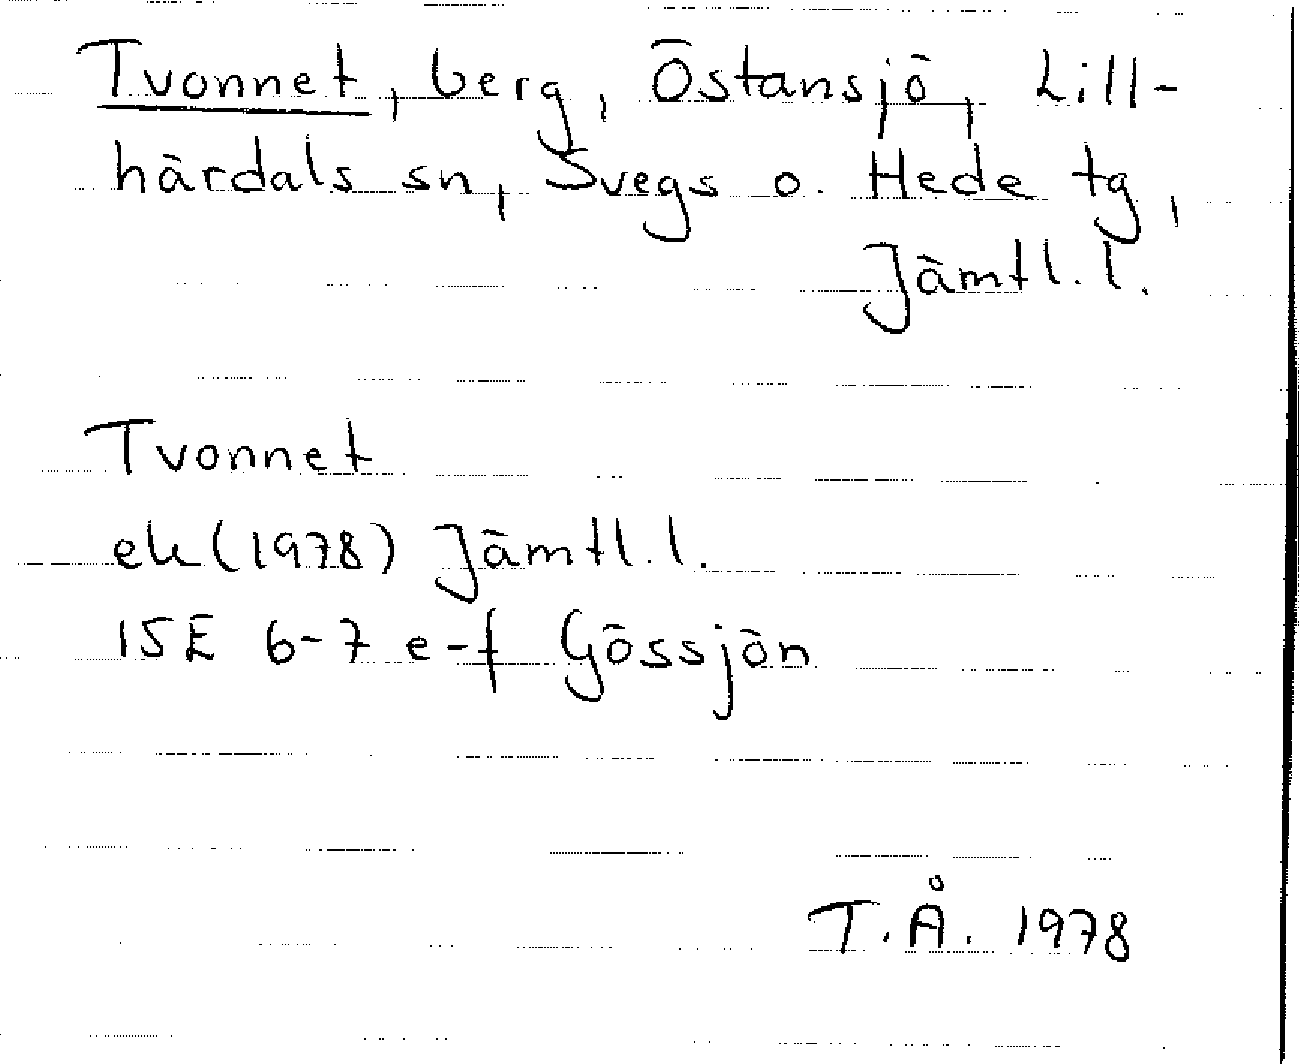 Tvonnet, berg, Östansjö, Lill-
härdals sn, Svegs o. Hede tg,
Jämtl. l.
Tvonnet
ek (1978) Jämtl. l.
15E 6-7 e-f Gössjön
T.Å. 1978